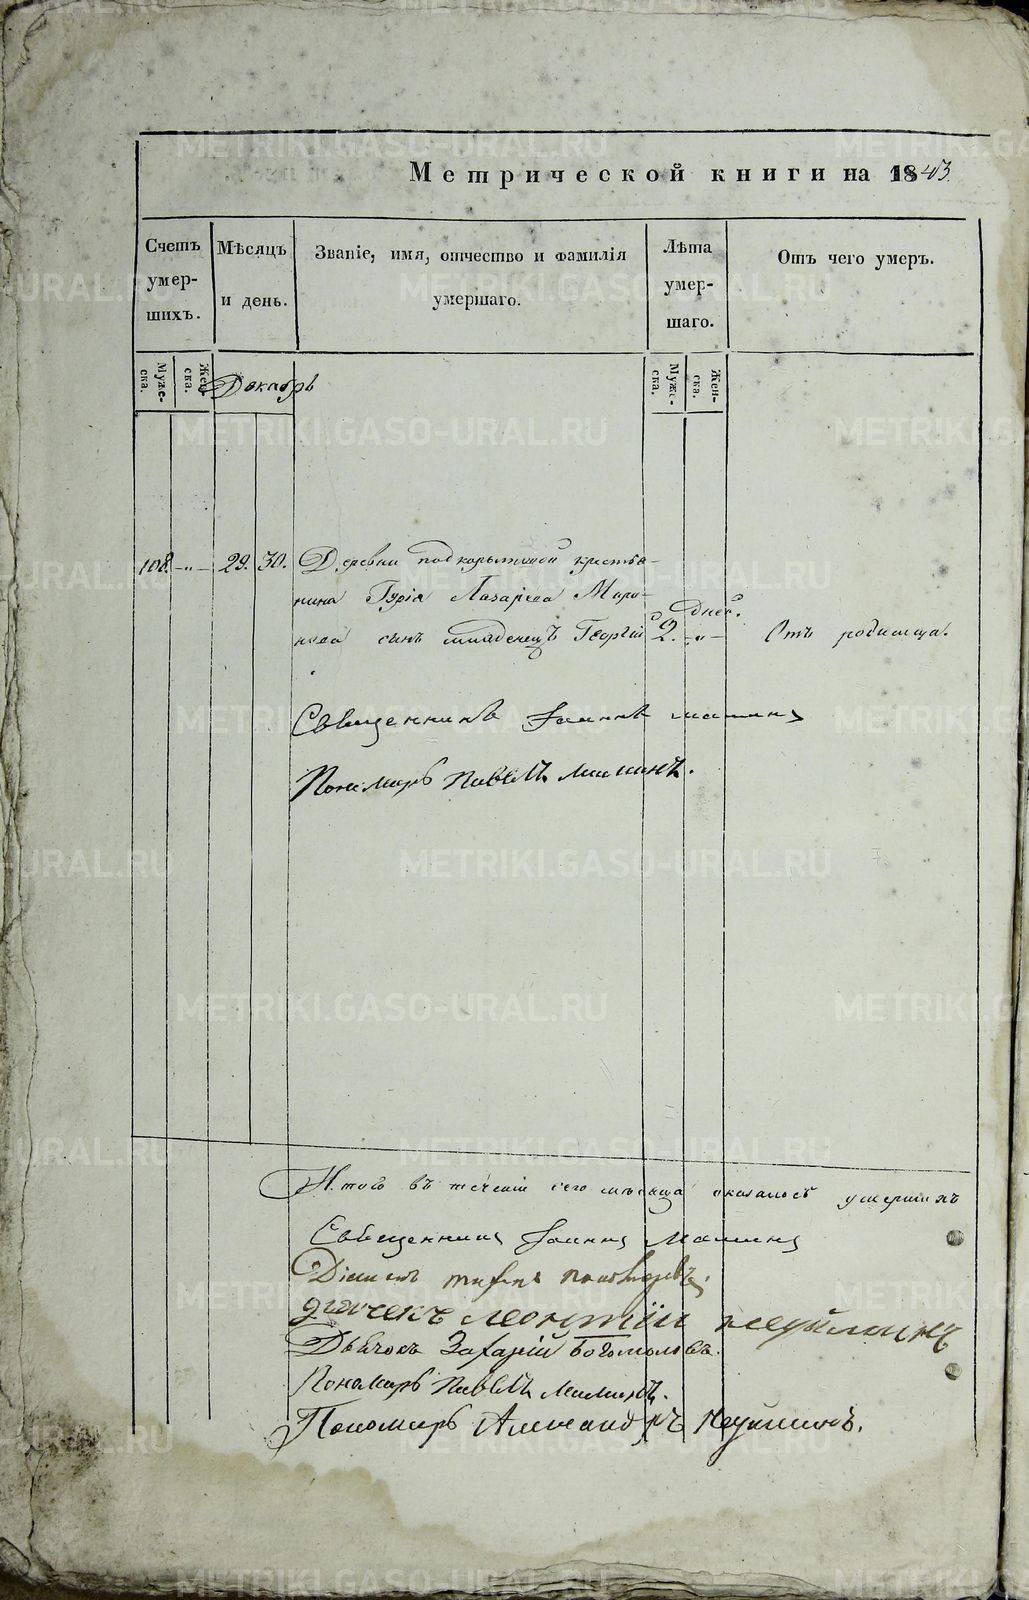 Метрической книги на 1843
Счетъ умер-шихъ.
Мѣсяцъ и день.
Званіе, имя, отчество и фамилія умершаго.
Лѣта умер-шаго.
Отъ чего умеръ.
Муже-ска.
Жен-ска.
Декабрь
Муже-ска.
Жен-ска.
108. -„- 29. 30. Деревни Подкорытовой крестья-
нина Гурія Лазарева Миро-
нова сынъ младенецъ Георгій 2. дней. -„- Отъ родимца.
Священникъ Іоаннъ
Пономарь Павелъ
Итого въ теченіи сего мѣсяца оказалось умершихъ
Священникъ Іоаннъ
Діаконъ
Дьячекъ Леонтій
Дьячокъ Захарій Богомоловъ.
Пономарь Павелъ
Пономарь Александръ Неуйминъ.
METRIKI.GASO-URAL.RU